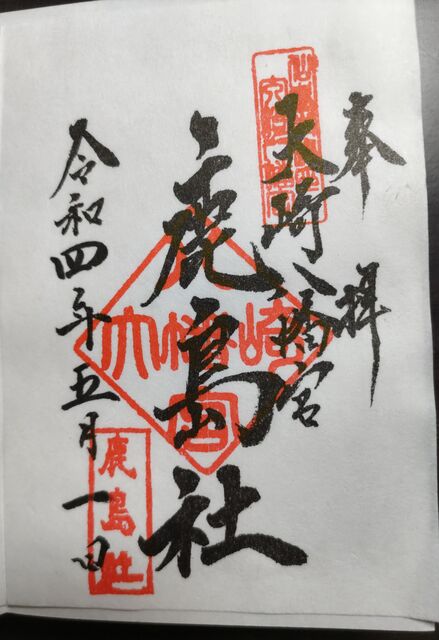 奉拝
大崎八幡宮
鹿島社
令和四年五月一日
大崎八幡宮
鹿島社